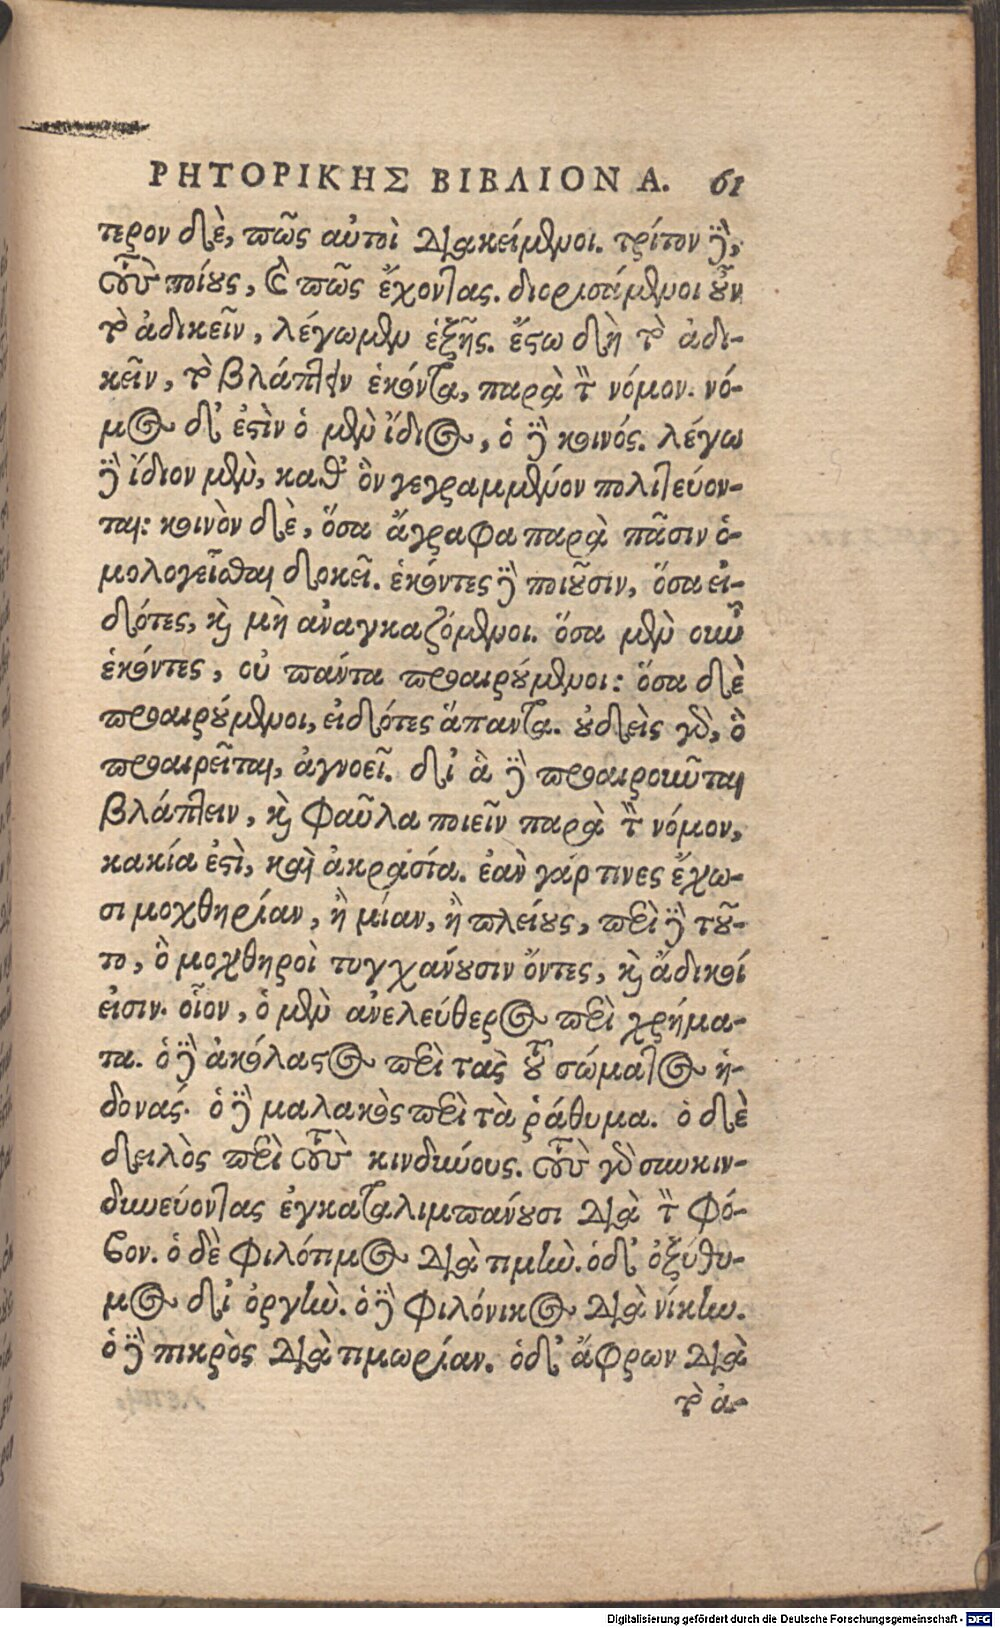 ΡΗΤΟΡΙΚΗΣ ΒΙΒΛΙΟΝ Α. 61
τερον δὲ, πῶς αὐτοὶ διακείμενοι. τρίτον δὲ,
τοὺς ποίους, καὶ πῶς ἔχοντας. διορισάμενοι οὖν
τὸ ἀδικεῖν, λέγωμεν ἑξῆς. ἔστω δὴ τὸ ἀδι-
κεῖν, τὸ βλάπτειν ἑκόντα, παρὰ τὸν νόμον. νό-
μος δ' ἐστὶν ὁ μὲν ἴδιος, ὁ δὲ κοινός. λέγω
δὲ ἴδιον μὲν, καθ' ὃν γεγραμμένον πολιτεύον-
ται: κοινὸν δὲ, ὅσα ἄγραφα παρὰ πᾶσιν ὁ-
μολογεῖσθαι δοκεῖ. ἑκόντες δὲ ποιοῦσιν, ὅσα εἰ-
δότες, καὶ μὴ ἀναγκαζόμενοι. ὅσα μὲν οὖν
ἑκόντες, οὐ πάντα προαιρούμενοι: ὅσα δὲ
προαιρούμενοι, εἰδότες ἅπαντα. οὐδεὶς γὰρ, ὃ
προαιρεῖται, ἀγνοεῖ. δι' ἃ δὲ προαιροῦνται
βλάπτειν, καὶ φαῦλα ποιεῖν παρὰ τὸν νόμον,
κακία ἐστὶ, καὶ ἀκρασία. ἐὰν γάρ τινες ἔχω-
σι μοχθηρίαν, ἢ μίαν, ἢ πλείους, περὶ δὲ τοῦ-
το, ὃ μοχθηροὶ τυγχάνουσιν ὄντες, καὶ ἄδικοί
εἰσιν. οἷον, ὁ μὲν ἀνελεύθερος περὶ χρήμα-
τα. ὁ δὲ ἀκόλαστος περὶ τὰς τοῦ σώματος ἡ-
δονάς. ὁ δὲ μαλακὸς περὶ τὰ ῥάθυμα. ὁ δὲ
δειλὸς περὶ τοὺς κινδύνους. τοὺς γὰρ συγκιν-
δυνεύοντας ἐγκαταλιμπάνουσι διὰ τὸν φό-
βον. ὁ δὲ φιλότιμος διὰ τιμήν. ὁ δ' ὀξύθυ-
μος δι' ὀργήν. ὁ δὲ φιλόνικος διὰ νίκην.
ὁ δὲ πικρὸς διὰ τιμωρίαν. ὁ δ' ἄφρων διὰ
τὸ ἀ-
Digitalisierung gefördert durch die Deutsche Forschungsgemeinschaft - DFG